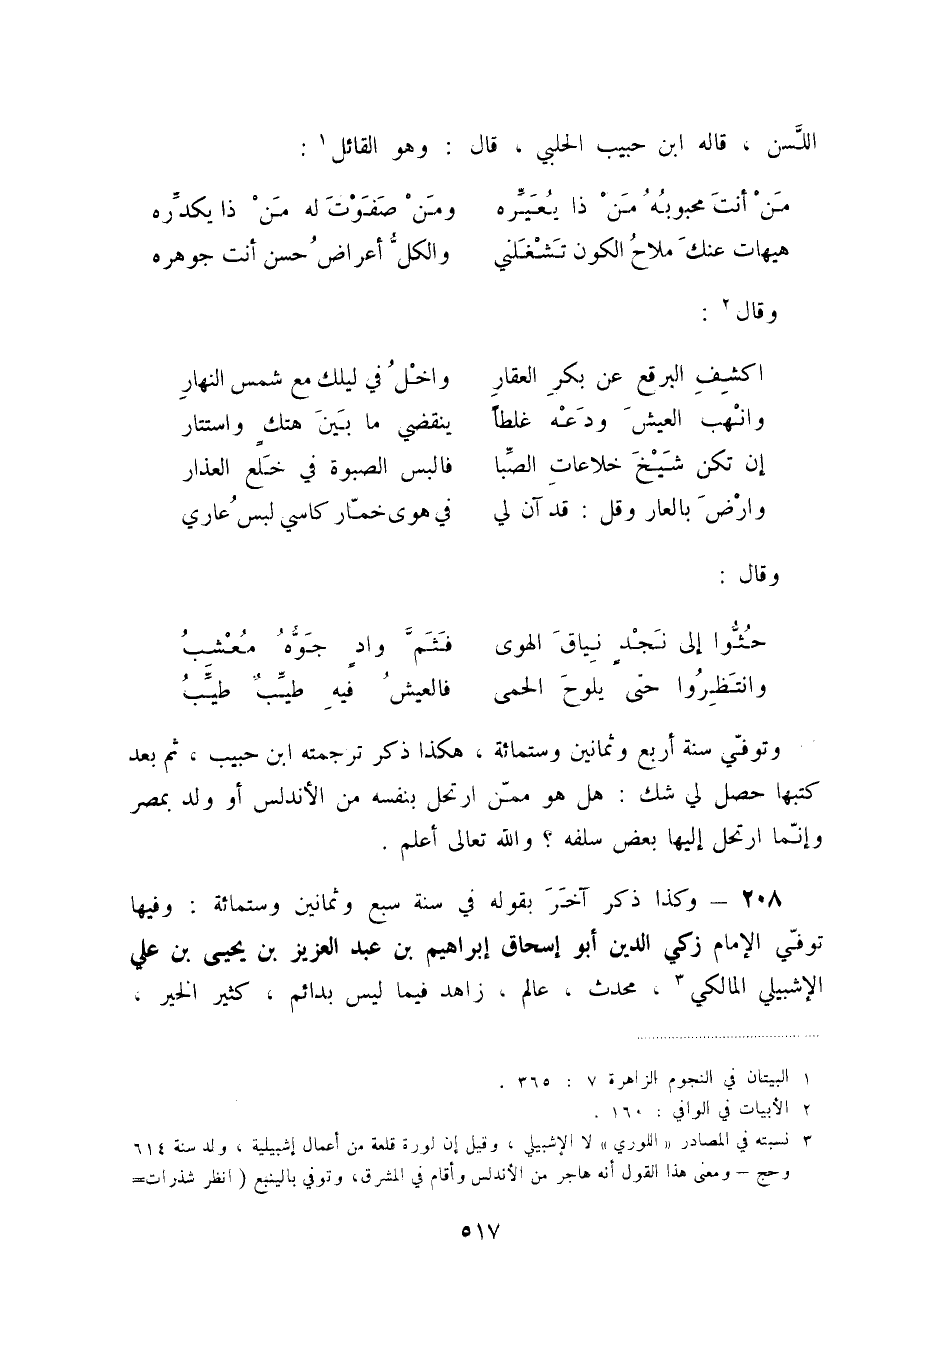 اللَّسن ، قاله ابن حبيب الحلبي ، قال : وهو القائل ١ :
مَنْ أنتَ محبوبُهُ مَنْ ذا يُعَيِّره ومَنْ صَفَوْتَ له مَنْ ذا يكدِّره
هيهات عنكَ ملاحُ الكون تَشْغَلُني والكلُّ أعراضُ حسن أنت جوهره
وقال ٢ :
اكشِفِ البرقع عن بكرِ العقارِ واخْلُ في ليلك مع شمس النهارِ
وانْهب العيشَ ودَعْه غلطاً ينقضي ما بَينَ هتكٍ واستتار
إن تكن شَيْخَ خلاعاتِ الصِّبا فالبس الصبوة في خَلع العذار
وارْضَ بالعار وقل : قد آن لي في هوى خمّار كاسي لبسُ عاري
وقال :
حُثُّوا إلى نَجْدٍ نِياقَ الهوى فَثَمَّ وادٍ جَوُّهُ مُعْشِبُ
وانتَظِرُوا حتّى يلوحَ الحمى فالعيشُ فيهِ طيِّبٌ طيِّبُ
وتوفّي سنة أربع وثمانين وستمائة ، هكذا ذكر ترجمته ابن حبيب ، ثم بعد
كتبها حصل لي شك : هل هو ممّن ارتحل بنفسه من الأندلس أو ولد بمصر
وإنّما ارتحل إليها بعض سلفه ؟ والله تعالى أعلم .
٢٠٨ – وكذا ذكر آخَرَ بقوله في سنة سبع وثمانين وستمائة : وفيها
توفّي الإمام زكي الدين أبو إسحاق إبراهيم بن عبد العزيز بن يحيى بن علي
الإشبيلي المالكي ٣ ، محدث ، عالم ، زاهد فيما ليس بدائم ، كثير الخير ،
١ البيتان في النجوم الزاهرة ٧ : ٣٦٥ .
٢ الأبيات في الوافي : ١٦٠ .
٣ نسبته في المصادر «اللوري» لا الإشبيلي ، وقيل إن لورة قلعة من أعمال إشبيلية ، ولد سنة ٦١٤
وحج – ومعنى هذا القول أنه هاجر من الأندلس وأقام في المشرق، وتوفي بالينبع ( انظر شذرات=
٥١٧